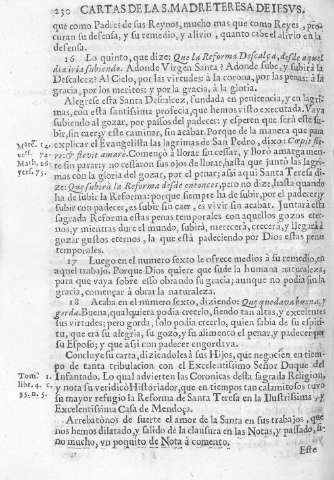 230 CARTAS DE LA S. MADRE TERESA DE IESVS.
que como Padres de sus Reynos, mucho mas que como Reyes, pro-
curan su defensa, y su remedio, y alivio, quanto cabe el alivio en la
defensa.
16 Lo quinto, que dize: Que la Reforma Descalça, desde aquel
dia iria subiendo. Adonde Virgen Santa? Adonde sube, y subirà la
Descalcez? Al Cielo, por las virtudes: à la corona, por las penas: à la
gracia, por los meritos: y por la gracia, à la gloria.
Alegrese esta Santa Descalcez, fundada en penitencia, y en lagri-
mas, con esta santissima profecia, que hemos visto executada. Vaya
subiendo al gozar, por passos del padecer: y espere que serà este su-
bir, sin caer; y este caminar, sin acabar. Porque de la manera que para
explicar el Evangelista las lagrimas de San Pedro, dixo: Cœpit fle-
re: flevit amarè. Començò à llorar sin cessar, y llorò amargamen-
te sin parar: y no cessaron sus ojos de llorar, hasta que juntò las lagri-
mas con la gloria del gozar, por el penar; assi aqui Santa Teresa di-
ze: Que subirà la Reforma desde entonces, pero no dize, hasta quando
ha de subir la Reforma: porque siempre ha de subir, por el padecer; y
subir con padecer, es subir sin caer, es vivir sin acabar. Juntarà esta
sagrada Reforma estas penas temporales con aquellos gozos eter-
nos, y mientras dure el mundo, subirà, merecerà, crecerà, y llegarà à
gozar gustos eternos, la que està padeciendo por Dios estas penas
temporales.
17 Luego en el numero sexto le ofrece medios à su remedio, en
aquel trabajo. Porque Dios quiere que sude la humana naturaleza,
para que vaya sobre ello obrando su gracia; aunque no podia sin la
gracia, començar à obrar la naturaleza.
18 Acaba en el numero sexto, diziendo: Que quedava buena, y
gorda. Buena, qualquiera podia creerlo, siendo tan altas, y excelentes
sus virtudes; pero gorda, solo podia creerlo, quien sabia de su espiri-
tu, que era su alegria, su gozo, y su alimento el penar, y padecer por
su Esposo; y que assi con padecer engordava.
Concluye su carta, diziendoles à sus Hijos, que negocien en tiem-
po de tanta tribulacion con el Excelentissimo Señor Duque del
Infantado. Lo qual advierten las Coronicas desta sagrada Religion,
y nota su veridico Historiador, que en tiempos tan calamitosos tuvo
su mayor refugio la Reforma de Santa Teresa en la Ilustrissima, y
Excelentissima Casa de Mendoça.
Arrebatònos de suerte el amor de la Santa en sus trabajos, que
nos hemos dilatado, y salido de la clausura en las Notas, y passado, si
no mucho, un poquito de Nota à comento.
Este
Marc. 14.
vers. 72.
Math. 26.
vers. 75.
Tom. 1.
libr. 4. c.
35. n. 5.